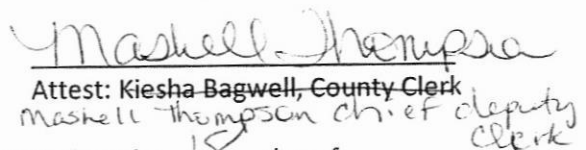 Mashell Thompson
Attest: Kiesha Bagwell, County Clerk
Mashell Thompson chief deputy
Clerk